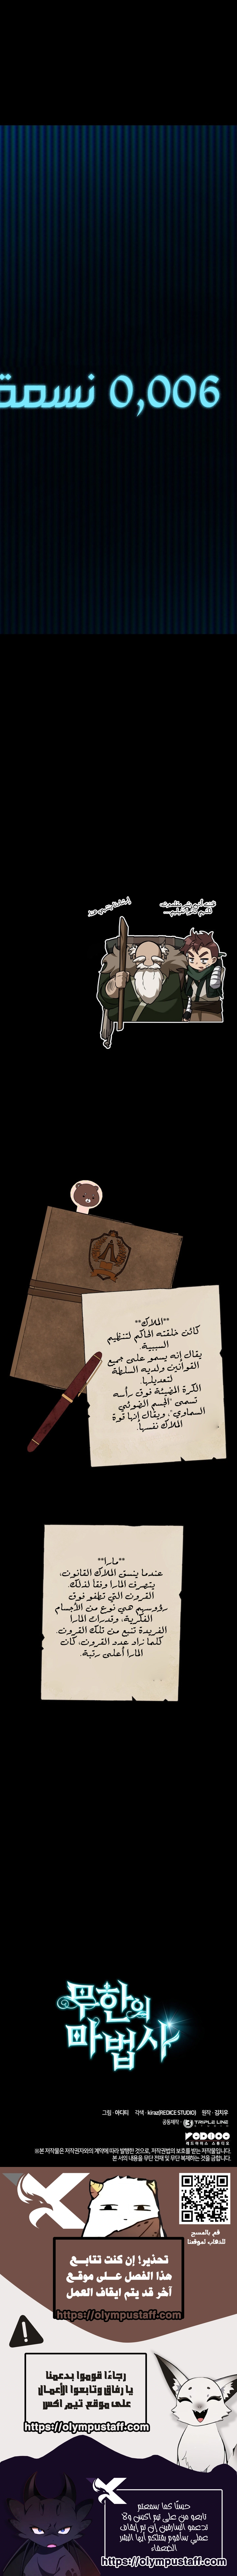 0,006 نسمة
**الملاك**
كائن خلقته الحاكم لتنظيم
السببية.
يقال إنه يسمو على جميع
القوانين ولديه السلطة
لتعديلها.
الكرة المضيئة فوق رأسه
تسمى "الجسم الضوئي
السماوي"، ويقال إنها قوة
الملاك نفسها.
**مارا**
عندما ينسق الملاك القانون،
يتصرف المارا وفقا لذلك.
القرون التي تظهر فوق
رؤوسهم هي نوع من الأجسام
الفكرية، وقدرات المارا
الفريدة تنبع من تلك القرون.
كلما زاد عدد القرون، كان
المارا أعلى رتبة.
무한의
마법사
그림 · 아디티 각색 · kiraz(REDICE STUDIO) 원작 · 김치우
공동제작 · TRIPLE LINE
REDICE
레드아이스 스튜디오
※본 저작물은 저작권자와의 계약에 따라 발행한 것으로, 저작권법의 보호를 받는 저작물입니다.
본 서의 내용을 무단 전재 및 무단 복제하는 것을 금합니다.
قم بالمسح
للذهاب لموقعنا
تحذير! إن كنت تتابع
هذا الفصل على موقع
آخر قد يتم ايقاف العمل
https://olympustaff.com
رجاءًا قوموا بدعمنا
يا رفاق وتابعوا الأعمال
على موقع تيم اكس
https://olympustaff.com
حسنًا كما سمعتم
تابعو من على تيم اكس ولا
تدعمو السارقين إن تم إيقاف
عملي سأقوم بقتلكم أيها البشر
الضعفاء
https://olympustaff.com